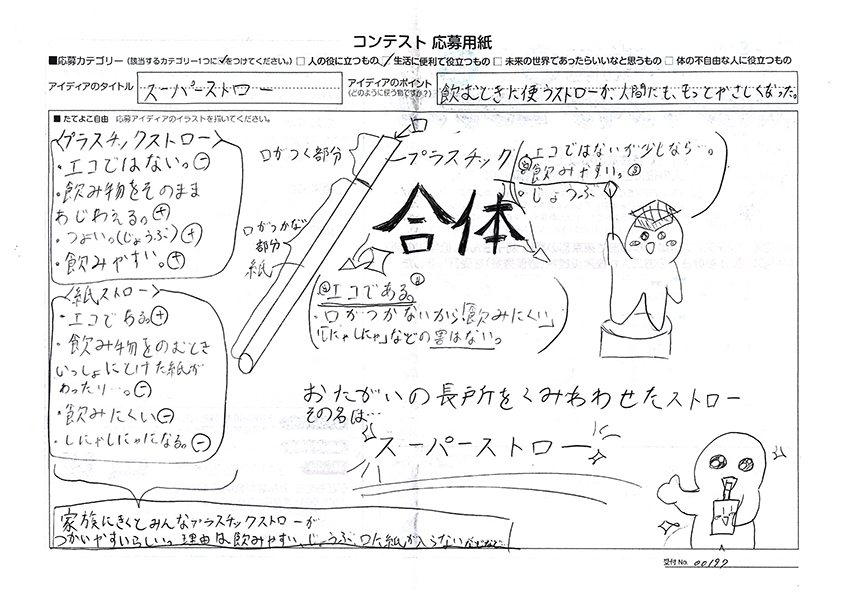 コンテスト 応募用紙
■応募カテゴリー (該当するカテゴリー1つに✓をつけてください。) □ 人の役に立つもの ☑ 生活に便利で役立つもの □ 未来の世界であったらいいなと思うもの □ 体の不自由な人に役立つもの
アイディアのタイトル
スーパーストロー
アイディアのポイント
(どのように使う物ですか?)
飲むときに使うストローが、人間にも、もっとやさしくなった。
■ たてよこ自由 応募アイディアのイラストを描いてください。
〈プラスチックストロー〉
・エコではない。⊖
・飲み物をそのまま
あじわえる。⊕
・つよい。(じょうぶ)⊕
・飲みやすい。⊕
〈紙ストロー〉
・エコである⊕
・飲み物をのむとき
いっしょにとけた紙が
わったり…。⊖
・飲みにくい⊖
・しにゃしにゃになる。⊖
口がつく部分
プラスチック
エコではないが少しなら…。
飲みやすい。
じょうぶ
合体
口がつかない
部分
紙
エコである。
・口がつかないから「飲みにくい」
「しにゃしにゃ」などの害はない。
おたがいの長所をくみあわせたストロー
その名は…
スーパーストロー
家族にきくとみんなプラスチックストローが
つかいやすいらしい。理由は、飲みやすい、じょうぶ、口に紙が入らないなど
受付No. 00197